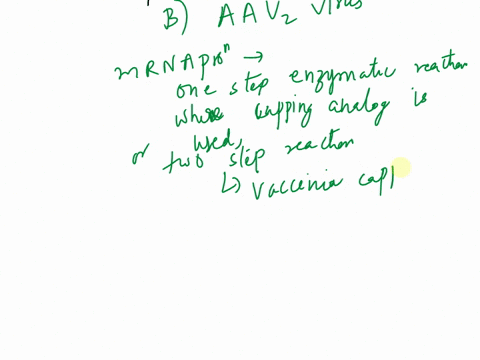 B) AAV2 virus
mRNA proⁿ →
one step enzymatic reaction
where capping analog is
used,
or two step reaction
↳ Vaccinia cap